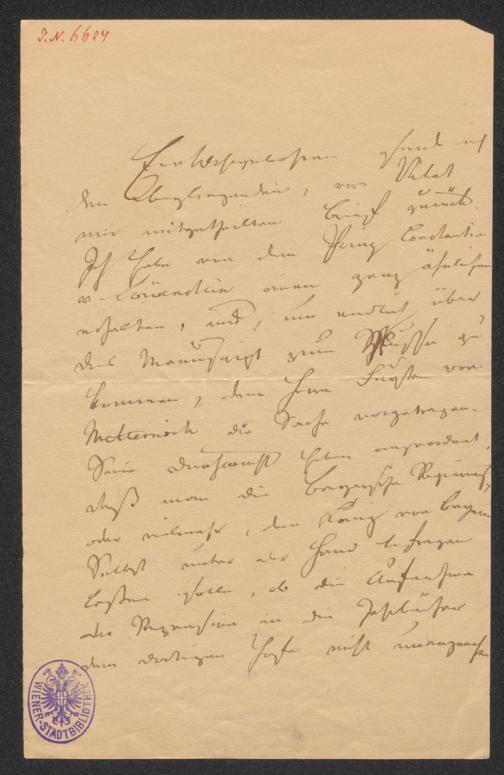 J.N. 6624
Euer Wohlgeboren sende ich
den Überbringenden, von Pilat
mir mitgetheilten Brief zurück.
Ich habe von dem Prinz Constantin
v. Löwenstein einen ganz ähnlichen
erhalten, und, um endlich über
das Manuscript zum Schlusse zu
kommen, dem Herrn Fürsten von
Metternich die Sache vorgetragen.
Seine Durchlaucht haben angeordnet,
daß man die bayerische Regierung,
oder vielmehr, den König von Bayern
Selbst unter der Hand befragen
lassen solle, ob die Aufnahme
der Rezension in die Jahrbücher
dem dortigen Hofe nicht unangenehm
WIENER-STADTBIBLIOTHEK